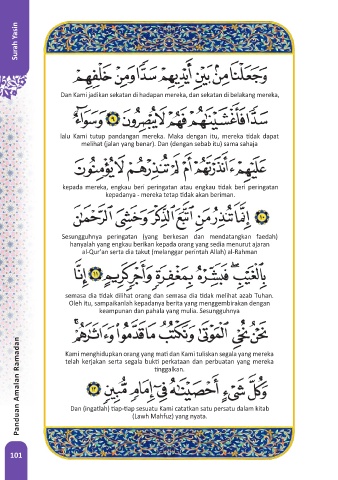 Surah Yasin
وَجَعَلْنَا مِنۢ بَيْنِ أَيْدِيهِمْ سَدًّا وَمِنْ خَلْفِهِمْ
Dan Kami jadikan sekatan di hadapan mereka, dan sekatan di belakang mereka,
سَدًّا فَأَغْشَيْنَٰهُمْ فَهُمْ لَا يُبْصِرُونَ ٩ وَسَوَآءٌ
lalu Kami tutup pandangan mereka. Maka dengan itu, mereka tidak dapat
melihat (jalan yang benar). Dan (dengan sebab itu) sama sahaja
عَلَيْهِمْ ءَأَنذَرْتَهُمْ أَمْ لَمْ تُنذِرْهُمْ لَا يُؤْمِنُونَ
kepada mereka, engkau beri peringatan atau engkau tidak beri peringatan
kepadanya - mereka tetap tidak akan beriman.
١٠ إِنَّمَا تُنذِرُ مَنِ ٱتَّبَعَ ٱلذِّكْرَ وَخَشِىَ ٱلرَّحْمَٰنَ
Sesungguhnya peringatan (yang berkesan dan mendatangkan faedah)
hanyalah yang engkau berikan kepada orang yang sedia menurut ajaran
al-Qur'an serta dia takut (melanggar perintah Allah) al-Rahman
بِٱلْغَيْبِ ۖ فَبَشِّرْهُ بِمَغْفِرَةٍ وَأَجْرٍ كَرِيمٍ ١١ إِنَّا
semasa dia tidak dilihat orang dan semasa dia tidak melihat azab Tuhan.
Oleh itu, sampaikanlah kepadanya berita yang menggembirakan dengan
keampunan dan pahala yang mulia. Sesungguhnya
نَحْنُ نُحْىِ ٱلْمَوْتَىٰ وَنَكْتُبُ مَا قَدَّمُوا۟ وَءَاثَٰرَهُمْ ۚ
Kami menghidupkan orang yang mati dan Kami tuliskan segala yang mereka
telah kerjakan serta segala bukti perkataan dan perbuatan yang mereka
tinggalkan.
وَكُلَّ شَىْءٍ أَحْصَيْنَٰهُ فِىٓ إِمَامٍ مُّبِينٍ ١٢
Dan (ingatlah) tiap-tiap sesuatu Kami catatkan satu persatu dalam kitab
(Lawh Mahfuz) yang nyata.
Panduan Amalan Ramadan
101